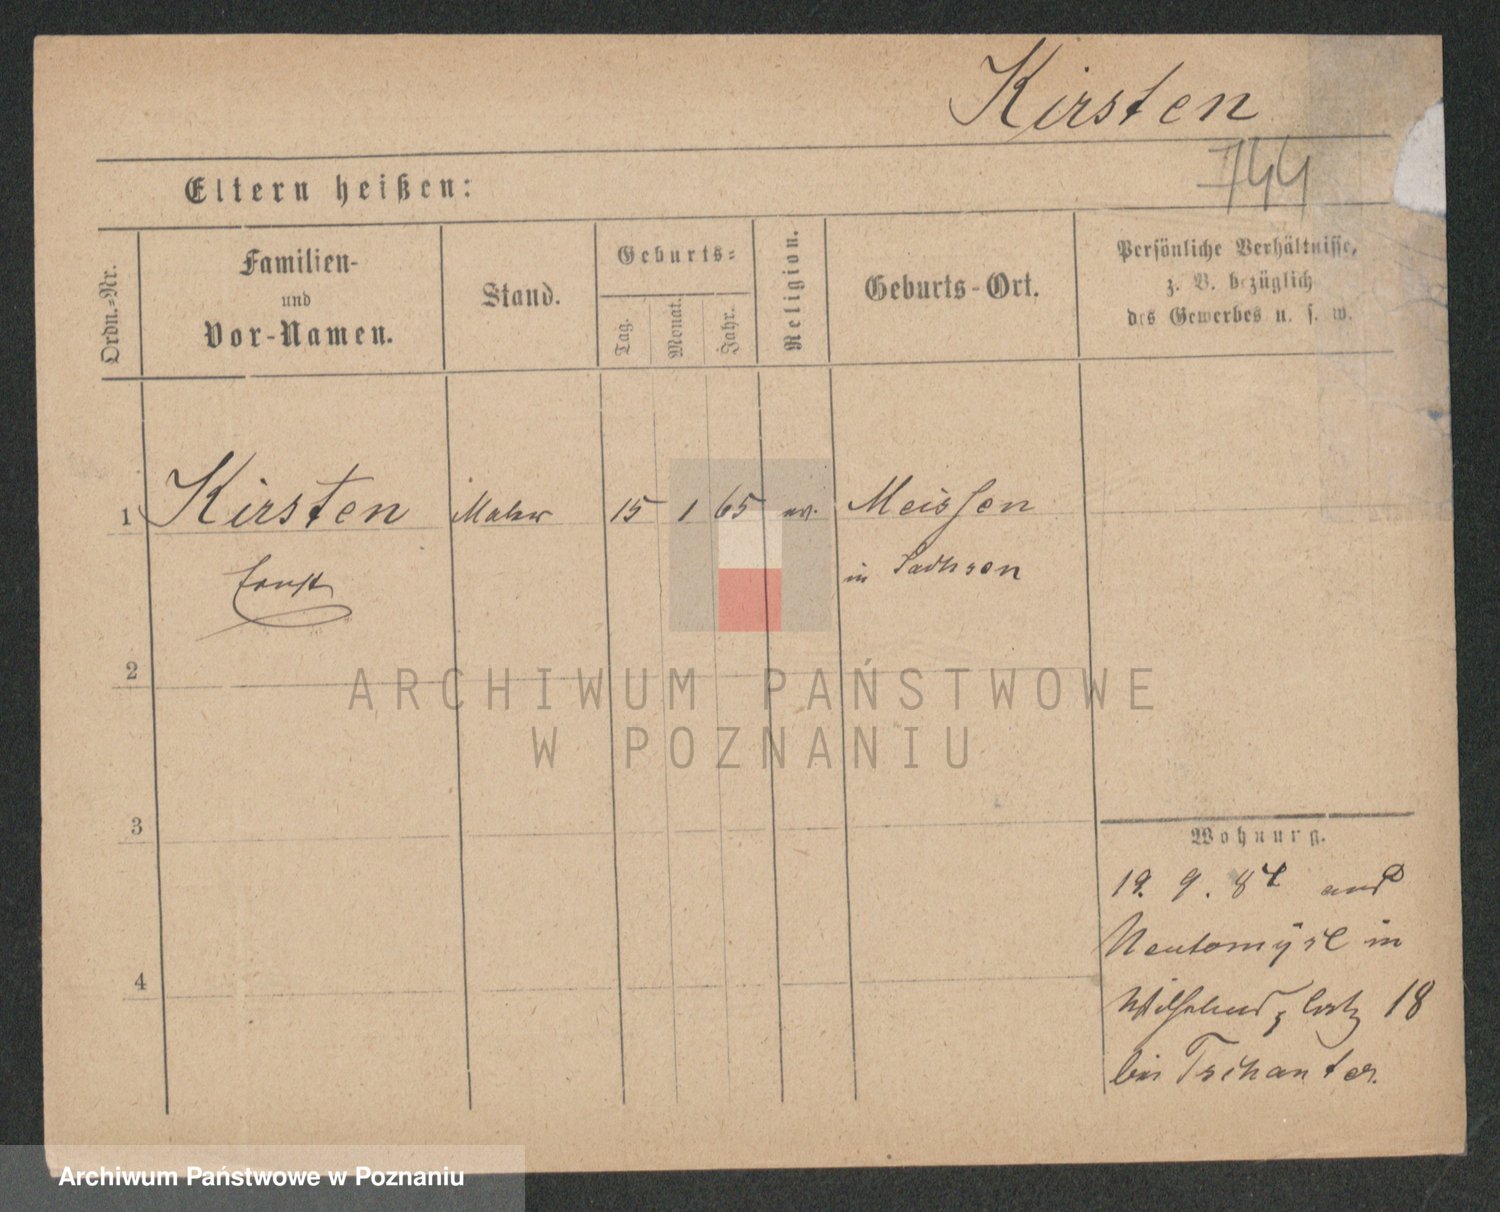 Kirsten
744
Eltern heißen:
Ordn.=Nr.
Familien-
und
Vor-Namen.
Stand.
Geburts=
Tag.
Monat.
Jahr.
Religion.
Geburts-Ort.
Persönliche Verhältnisse,
z. B. bezüglich
des Gewerbes u. s. w.
1 Kirsten Maler 15 1 65 ev. Meissen
Ernst in Sachsen
2
3
4
ARCHIWUM PAŃSTWOWE
W POZNANIU
Wohnung.
19. 9. 84 aus
Neutomysl in
Wilhelmsplatz 18
bei Tschanter.
Archiwum Państwowe w Poznaniu